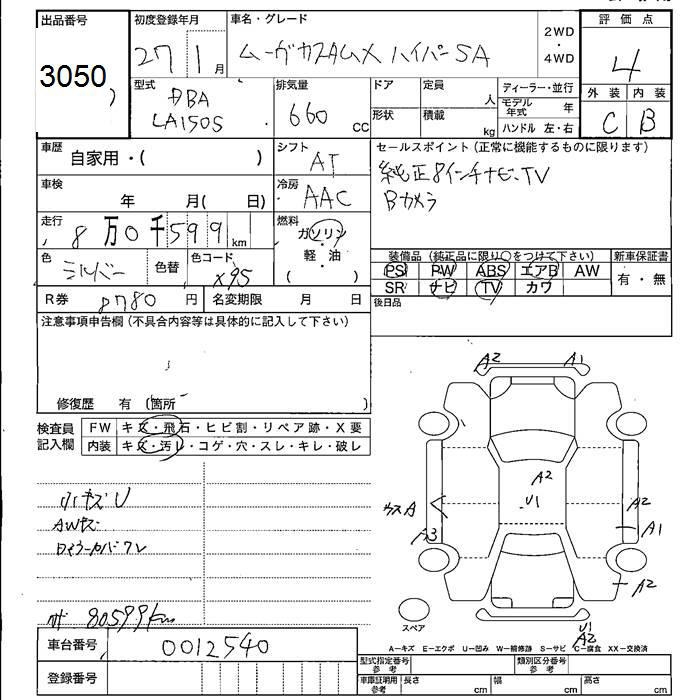 出品番号
3050
初度登録年月
27 1月
車名・グレード
ムーヴカスタムX ハイパーSA
2WD・4WD
評価点
4
外装 内装
C B
型式
DBA
LA150S
排気量
660 cc
ドア
形状
定員 人
積載 kg
ディーラー・並行
モデル年式 年
ハンドル 左・右
車歴
自家用・( )
シフト
AT
セールスポイント(正常に機能するものに限ります)
純正8インチナビ、TV
Bカメラ
車検
年 月( 日)
冷房
AAC
走行
8万0千599km
燃料
ガソリン・軽油
色
シルバー
色替
色コード
X95
装備品(純正品に限り○をつけて下さい)
PS PW ABS エアB AW
SR ナビ TV カワ
新車保証書
有・無
R券 8780円
名変期限 月 日
後日品
注意事項申告欄(不具合内容等は具体的に記入して下さい)
修復歴 有(箇所 )
検査員記入欄
FW キズ・飛石・ヒビ割・リペア跡・X要
内装 キズ・汚レ・コゲ・穴・スレ・キレ・破レ
小キズU
AWキズ
80599km
A2 A1
A2
U1
ウスA
A3
A2
A1
A2
U1
A2
スペア
A-キズ E-エクボ U-凹み W-補修跡 S-サビ C-腐食 XX-交換済
車台番号 0012540
登録番号
型式指定番号 参考
類別区分番号 参考
車庫証明用 参考
長さ cm
幅 cm
高さ cm